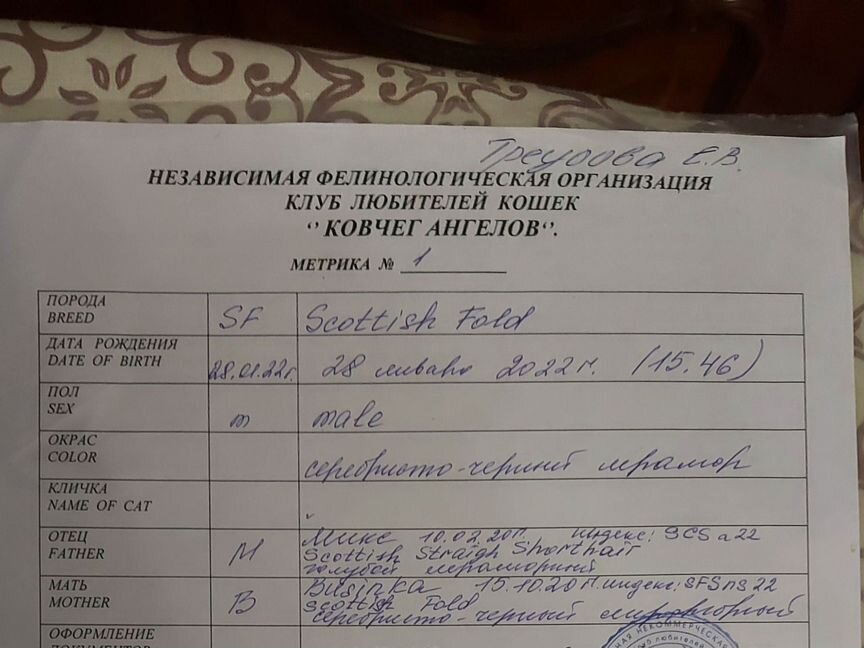 Треубова Е.В.
НЕЗАВИСИМАЯ ФЕЛИНОЛОГИЧЕСКАЯ ОРГАНИЗАЦИЯ
КЛУБ ЛЮБИТЕЛЕЙ КОШЕК
‘’ КОВЧЕГ АНГЕЛОВ‘’.
МЕТРИКА № 1
ПОРОДА
BREED
SF
Scottish Fold
ДАТА РОЖДЕНИЯ
DATE OF BIRTH
28.01.22г.
28 января 2022г. (15.46)
ПОЛ
SEX
m
male
ОКРАС
COLOR
серебристо-черный мрамор
КЛИЧКА
NAME OF CAT
ОТЕЦ
FATHER
М
Микс 10.02.20г. индекс: SCS a 22
Scottish Straigh Shorthair
голубой мраморный
МАТЬ
MOTHER
B
Businka 15.10.20г. индекс: SFS ns 22
Scottish Fold
серебристо-черный мраморный
ОФОРМЛЕНИЕ
ДОКУМЕНТОВ
НАЯ НЕКОММЕРЧЕСКАЯ
уб любителей